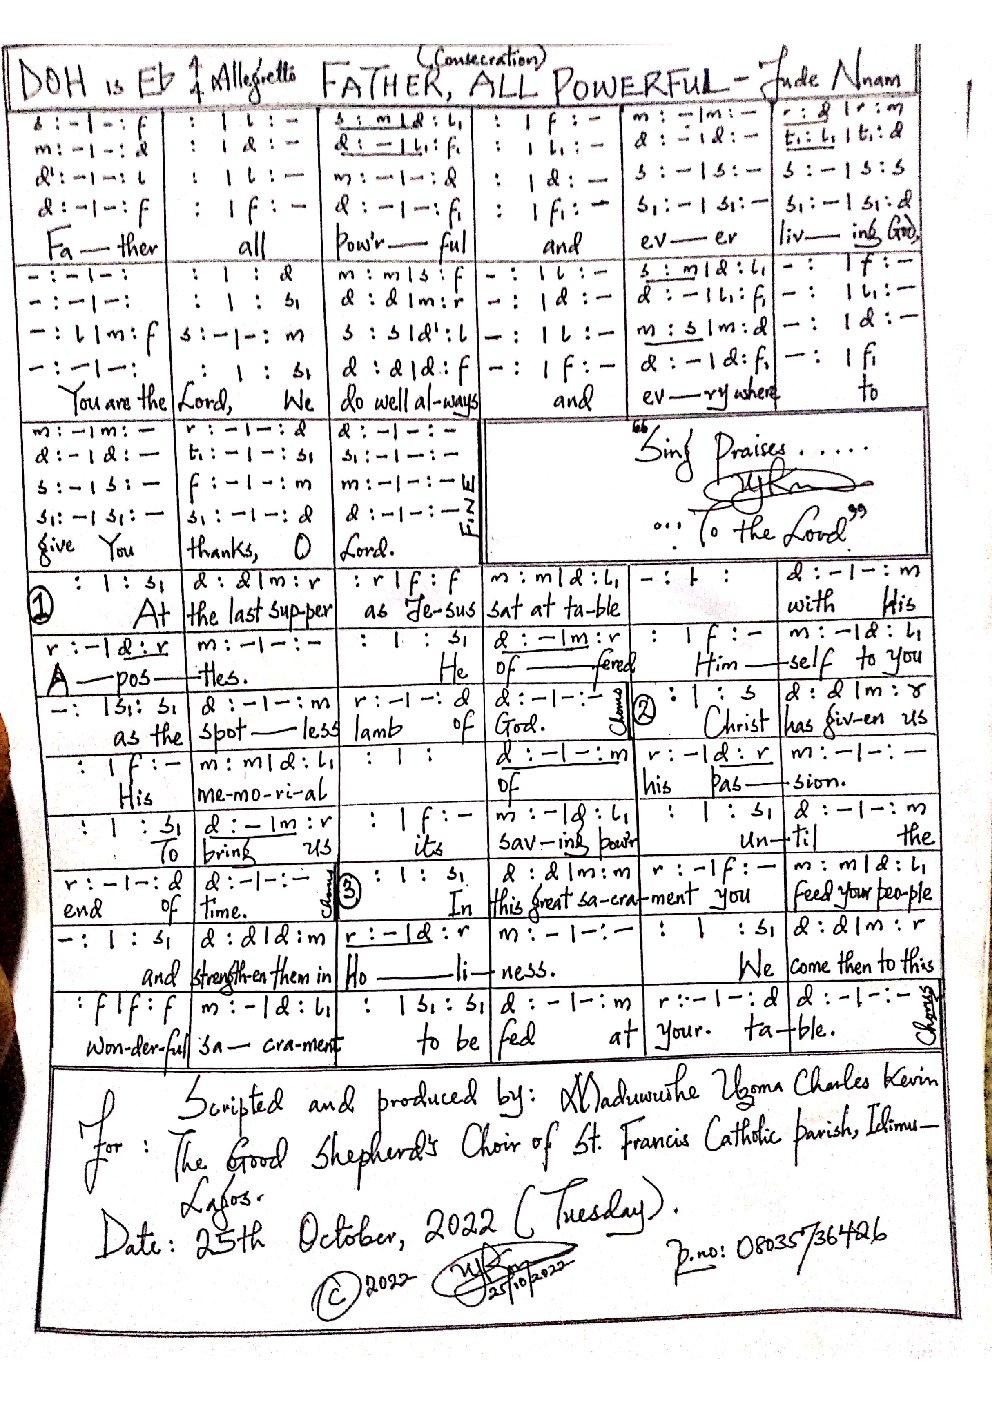 (Consecration)
DOH is Eb Allegretto FATHER, ALL POWERFUL - Jude Nnam
s : - | - : f : | l : - s : m | d : l₁ : | f : - m : - | m : - r : d | r : m
m : - | - : d : | d : - d : - | l₁ : f₁ : | l₁ : - d : - | d : - t₁ : l₁ | t₁ : d
d' : - | - : l : | l : - m : - | - : d : | d : - s : - | s : - s : - | s : s
d : - | - : f : | f : - d : - | - : f₁ : | f₁ : - s₁ : - | s₁ : - s₁ : - | s₁ : d
Fa - ther all pow'r - ful and ev - er liv - ing God,
- : - | - : : | : d m : m | s : f - : | l : - s : m | d : l₁ - : | f : -
- : - | - : : | : s₁ d : d | m : r - : | d : - d : - | l₁ : f₁ - : | l₁ : -
- : l | m : f s : - | - : m s : s | d' : l - : | l : - m : s | m : d - : | d : -
- : - | - : : | : s₁ d : d | d : f - : | f : - d : - | d : f₁ - : | f₁
You are the Lord, We do well al-ways and ev - ry where to
m : - | m : - r : - | - : d d : - | - : -
d : - | d : - t₁ : - | - : s₁ s₁ : - | - : -
s : - | s : - f : - | - : m m : - | - : -
s₁ : - | s₁ : - s₁ : - | - : d d : - | - : - FINE
give You thanks, O Lord.
"Sing Praises .....
... To the Lord"
1 : | : s₁ d : d | m : r : r | f : f m : m | d : l₁ - : | : d : - | - : m
At the last sup-per as Je-sus sat at ta-ble with His
r : - | d : r m : - | - : - : | : s₁ d : - | m : r : | f : - m : - | d : l₁
A - pos - tles. He of - fered Him - self to you
- : | s₁ : s₁ d : - | - : m r : - | - : d d : - | - : - Chorus 2 : | : s d : d | m : r
as the spot - less lamb of God. Christ has giv-en us
: | f : - m : m | d : l₁ : | : d : - | - : m r : - | d : r m : - | - : -
His me-mo-ri-al of his pas - sion.
: | : s₁ d : - | m : r : | f : - m : - | d : l₁ : | : s₁ d : - | - : m
To bring us its sav-ing pow'r un-til the
r : - | - : d d : - | - : - Chorus 3 : | : s₁ d : d | m : m r : - | f : - m : m | d : l₁
end of time. In this great sa-cra-ment you feed your peo-ple
- : | : s₁ d : d | d : m r : - | d : r m : - | - : - : | : s₁ d : d | m : r
and strength-en them in Ho - li - ness. We come then to this
: f | f : f m : - | d : l₁ : | s₁ : s₁ d : - | - : m r : - | - : d d : - | - : - Chorus
won-der-ful sa - cra-ment to be fed at your. ta - ble.
Scripted and produced by: Maduwushe Uzoma Charles Kevin
For : The Good Shepherd's Choir of St. Francis Catholic parish, Idimu -
Lagos.
Date: 25th October, 2022 (Tuesday).
P.no: 08035736426
© 2022
25/10/2022